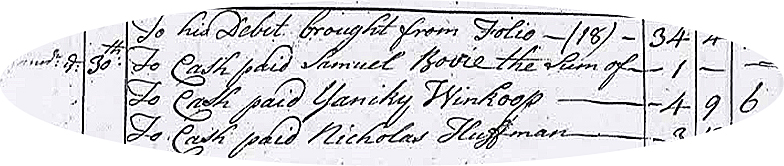 To his Debit brought from Folio — (18) — 34 4
30th. To Cash paid Samuel Bovie the Sum of — 1 — —
To Cash paid Yaniky Winkoop — 4 9 6
To Cash paid Nicholas Huffman —